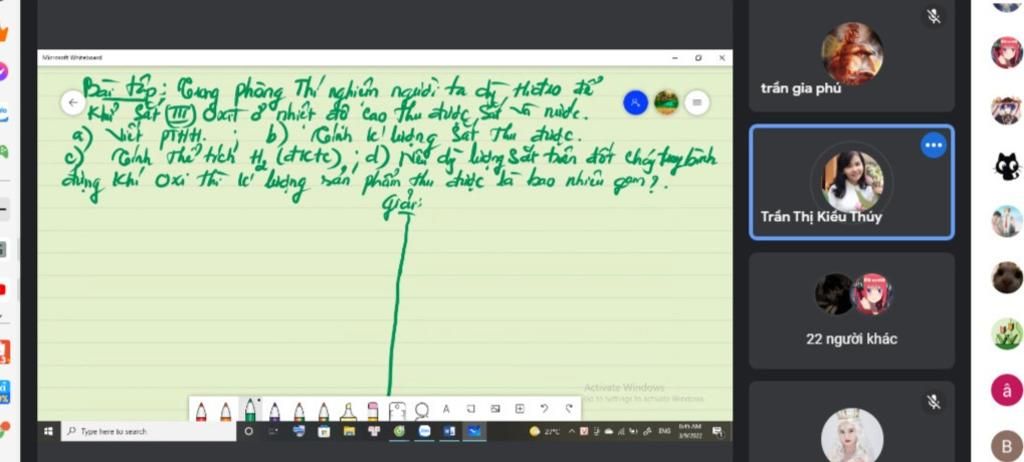 Microsoft Whiteboard
Bài tập: Trong phòng Thí nghiệm người ta dùng để
khử Sắt (III) Oxit ở nhiệt độ cao Thu được Sắt và nước.
a) Viết PTHH. ; b) Tính k' lượng Sắt Thu được.
c) Tính Thể tích H2 (đktc) ; d) Nếu lượng Sắt trên đốt cháy trong bình
đựng khí Oxi Thì k' lượng sản phẩm thu được là bao nhiêu gam?.
Giải:
Activate Windows
Go to Settings to activate Windows.
A
Type here to search
27°C
ENG
3/9/2022
trần gia phú
Trần Thị Kiều Thúy
22 người khác
â
B